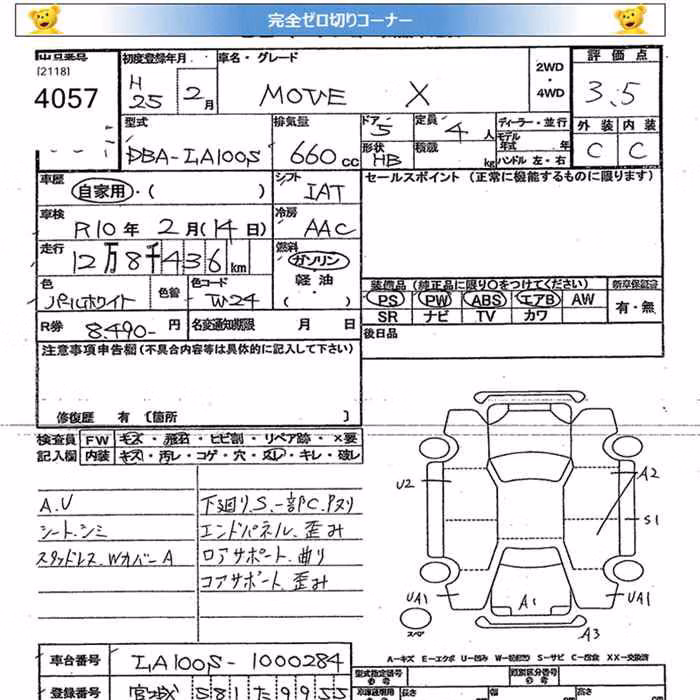 完全ゼロ切りコーナー
出品番号 初度登録年月 車名・グレード 2WD・4WD 評価点
(2118)
4057 H25 2月 MOVE X 3.5
型式 排気量 ドア 5 定員 4人 ディーラー・並行 外装 内装
DBA-LA100S 660cc 形状 HB 積載 kg モデル年式 年 ハンドル 左・右 C C
車歴 自家用・( ) シフト IAT セールスポイント(正常に機能するものに限ります)
車検 R10年 2月(14日) 冷房 AAC
走行 12万8千436km 燃料 ガソリン・軽油・( )
色 パールホワイト 色替 色コード W24
装備品(純正品に限り○をつけてください) 新車保証書
PS PW ABS エアB AW 有・無
SR ナビ TV カワ
R券 8.490-円 名変通知期限 月 日 後日品
注意事項申告欄(不具合内容等は具体的に記入して下さい)
修復歴 有 〔箇所 〕
検査員 FW キズ・飛石・ヒビ割・リペア跡・×要
記入欄 内装 キズ・汚レ・コゲ・穴・スレ・キレ・破レ
A.U 下廻り.S.一部C.Pヌリ
シート.シミ エンドパネル.歪み
スタッドレス.Wカバー A ロアサポート.曲り
コアサポート.歪み
U2 A2
S1
UA1 A1 UA1
スペア A3
A-キズ E-エクボ U-凹み S-サビ C-腐食 XX-交換済
車台番号 LA100S-1000284 型式指定番号 類別区分番号
登録番号 宮城 581 た 9955 長さ 幅 高さ